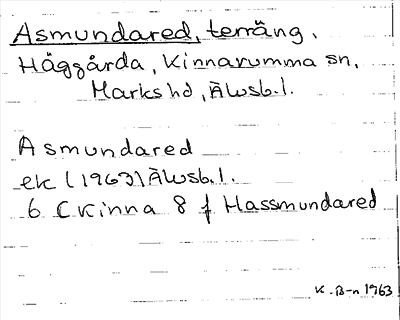 Asmundared, terräng.
Häggårda, Kinnarumma sn,
Marks hd, Älvsb. l.
Asmundared
ek (1963) Älvsb. l.
6 C Kinna 8 f Hassmundared
K. B-n 1963